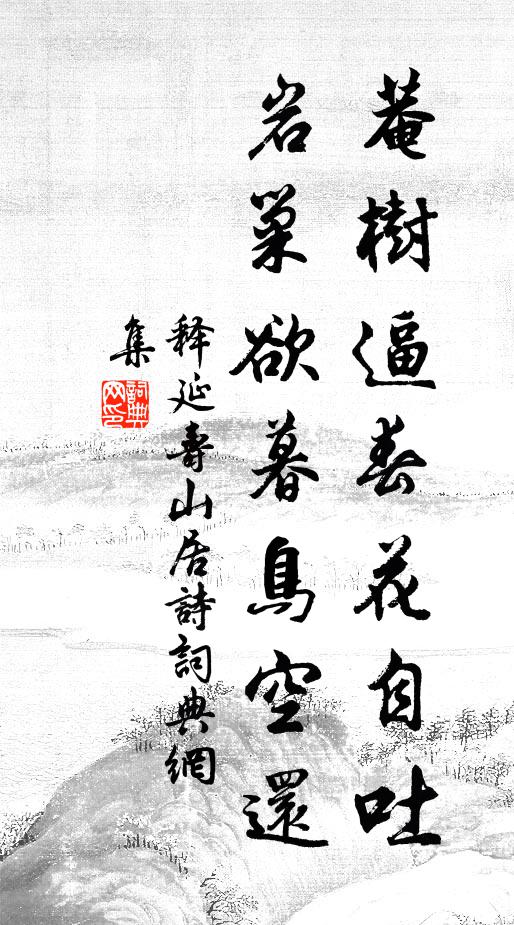 菴樹逼春花自吐
岩巢欲暮鳥空還
释延壽山居詩詞典網
集
詞典网印